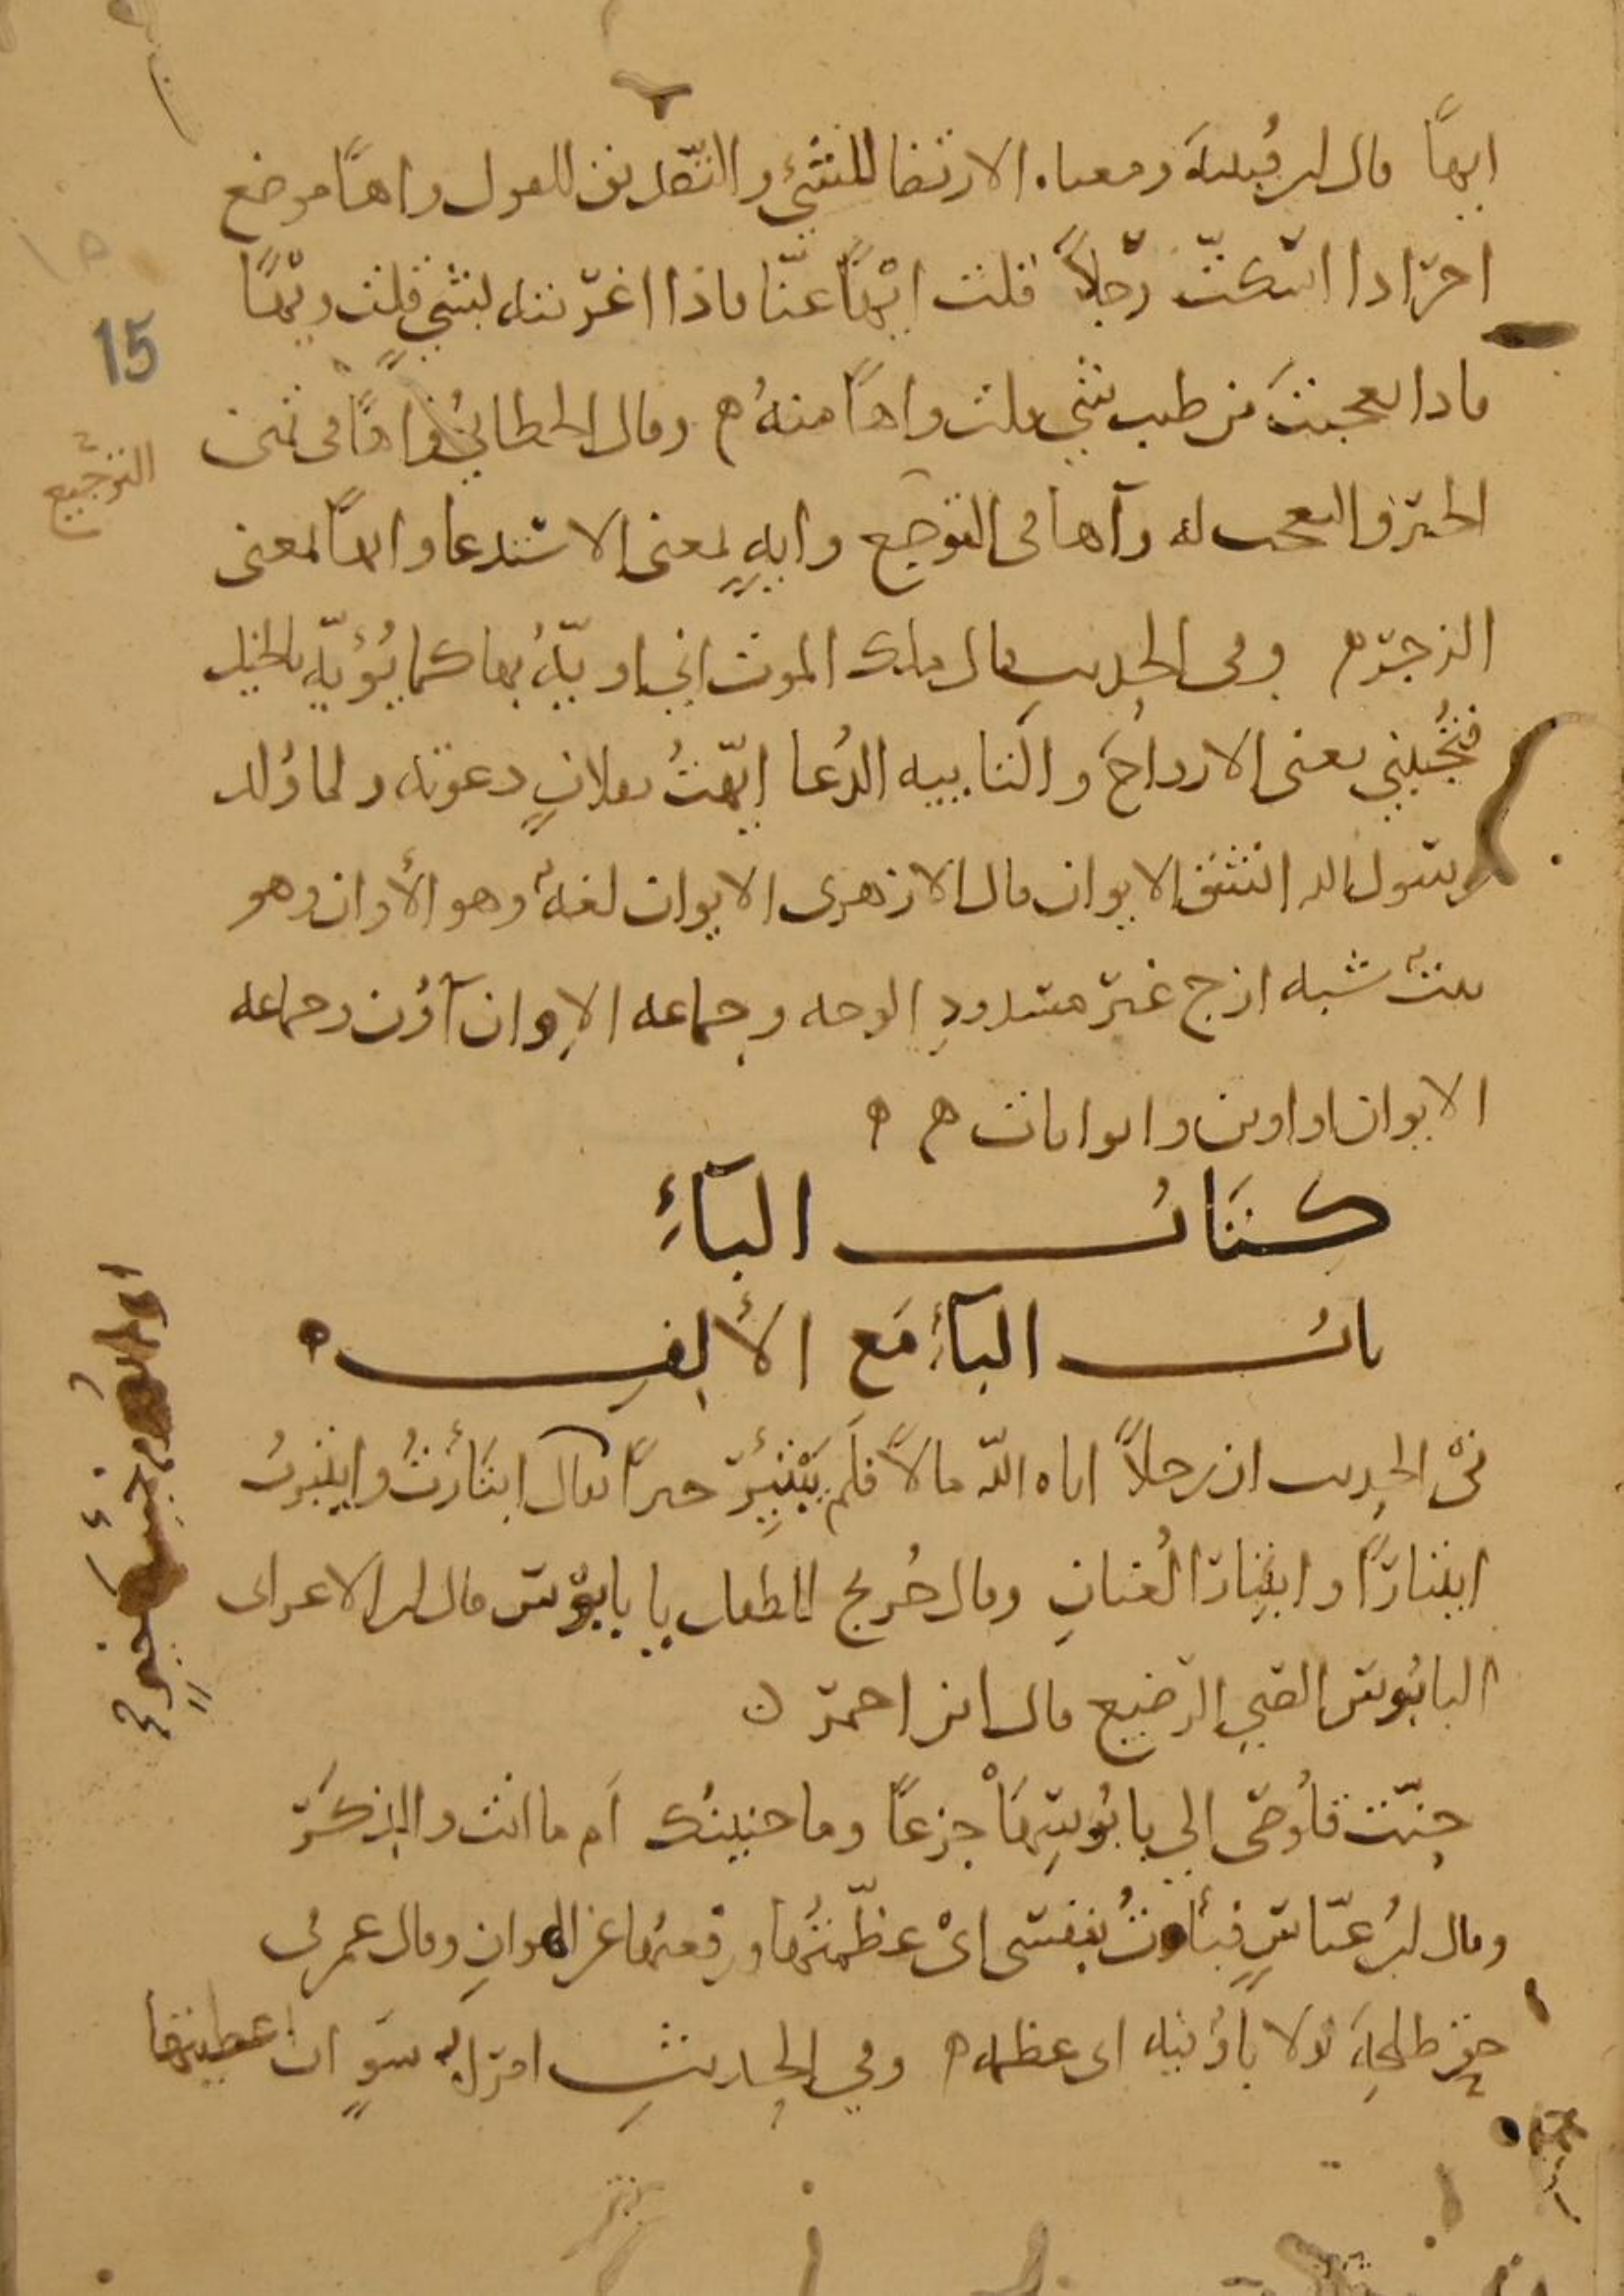 ايهًا قال ابن قُتيبةَ ومعناه الارتضا للشيء والتّصديق للقول واهًا موضع
اخر اذا اسكتّ رجلاً قلت ايْهًا عنّا فاذا اغريته بشيٍ قلت ويْهًا
فاذا تعجبتَ من طيب شي قلت واهًا منهُ ه وقال الخطابيُّ واهًا في تمنى
الخير والتعجب له وآها في التوجع وايهٍ بمعنى الاستدعا وايهًا بمعنى
الزجر ه وفي الحديث قال ملك الموت اني اويّهُ بها كما يُؤيّه بالخيل
فتُجيبني يعني الارواحَ والتاييه الدُعا ايّهتُ بفلانٍ دعوته ولما وُلد
رسول الله انشق الايوان قال الازهري الايوان لغةٌ وهو الأوان وهو
بيتٌ شبه ازج غير مسدودِ الوجه وجماعه الإوان آوُن وجماعه
الايوان اواوين وايوانات ه ه
كتابُ البآءِ
بابُ البآءِ مَع الألِفِ ه
فى الحديث ان رجلاً اتاه اللّه مالاً فلَم يَبْتَئِرْ خيرًا يقال ابتَأَرْتُ وايتَبرتُ
ابتئارًا وايتِبارًا لُغتانِ وقال جُريج للطفل يا بابوس قال ابن الاعرابى
البابُوس الصبي الرضيع قال ابن احمر ه
حِنّت قَلُوصى الي بابُوسِهَا جزعًا وما حنينُك اَم ما انت والذِكَرُ
وقال ابنُ عبّاسٍ فبَأوتُ بنفسى اىْ عظّمتُها ورفعتُها عن الهوانِ وقال عمر في
حق طلحةَ لولا بَأوٌ فيه اى عظمه ه وفي الحديثِ امرأةُ سَوٍ ان اعطيتها
15
الترجيع